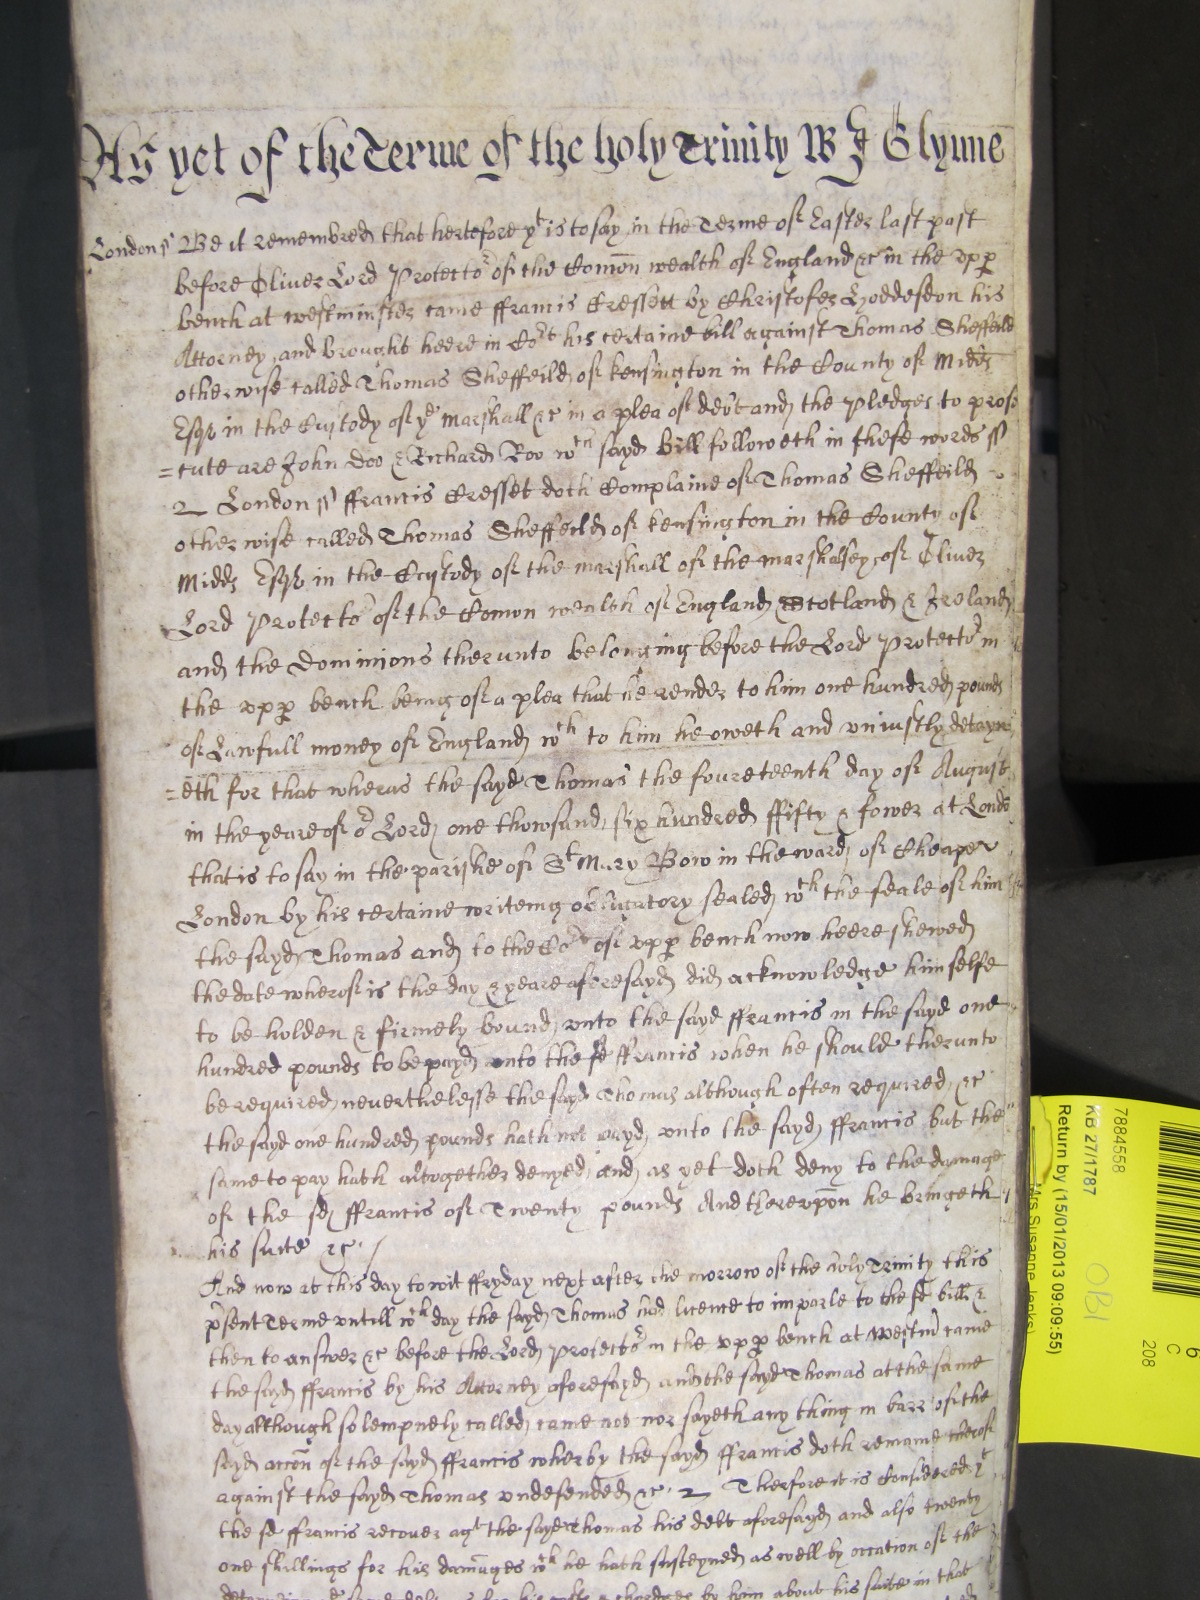 As yet of the Terme of the holy Trinity Glynne
London ss Be it remembred that hertofore yt is to say in the Terme of Easter last past
before Oliver Lord Protector of the Comon wealth of England &c in the upp
bench at westminster came ffrancis Cressett by Christofer Hoddesdon his
Attorney, and brought heere in Cort his certaine bill against Thomas Sheffeild
otherwise called Thomas Sheffeild of kensington in the County of Midds
Esqr in the Custody of ye Marshall &c in a plea of debt and the pledges to prose
=cute are John Doo & Richard Roo wch sayd bill followeth in these words ss
London ss ffrancis Cresset doth Complaine of Thomas Sheffeild
otherwise called Thomas Sheffeild of kensington in the County of
Midds Esqr in the Custody of the marshall of the marshalsey of Oliver
Lord Protector of the Comon wealth of England Scotland & Ireland
and the Dominions therunto belonging before the Lord Protector in
the upp bench being of a plea that he render to him one hundred pounds
of Lawfull money of England wch to him he oweth and uniustly detayn
=eth for that wheras the sayd Thomas the foureteenth day of August
in the yeare of or Lord one thowsand six hundred ffifty & fower at Londo
that is to say in the parishe of St Mary Bow in the ward of Cheape
London by his certaine writeing obligatory sealed wth the seale of him
the sayd Thomas and to the Cort of upp bench now heere shewed
the date wherof is the day & yeare aforesayd did acknowledge himselfe
to be holden & firmely bound unto the sayd ffrancis in the sayd one
hundred pounds to be payd unto the sd ffrancis when he should therunto
be required neverthelesse the sayd Thomas although often required &c
the sayd one hundred pounds hath not payd unto the sayd ffrancis but the
same to pay hath altogether denyed and as yet doth deny to the damage
of the sd ffrancis of Twenty pounds And therevpon he bringeth
his suite &c
And now at this day to wit ffryday next after the morrow of the holy Trinity this
psent Terme untill wch day the sayd Thomas had licence to imparle to the sd bill &
then to answer &c before the Lord Protector in the upp bench at Westm came
the sayd ffrancis by his Attorney aforesayd and the sayd Thomas at the same
day although solempnely called came not nor sayeth any thing in barr of the
sayd accon of the sayd ffrancis wherby the sayd ffrancis doth remaine therof
against the sayd Thomas undefended &c Therfore it is Considered yt
the sd ffrancis recover agt the sayd Thomas his debt aforesayd and also twenty
one shillings for his damages wch he hath susteyned as well by occation of the
for his costs & chardges by him about his suite in that
7884558
KB 27/1787
Return by (15/01/2013 09:09:55)
Mrs Susanne Jenks
OBI
6
C
208